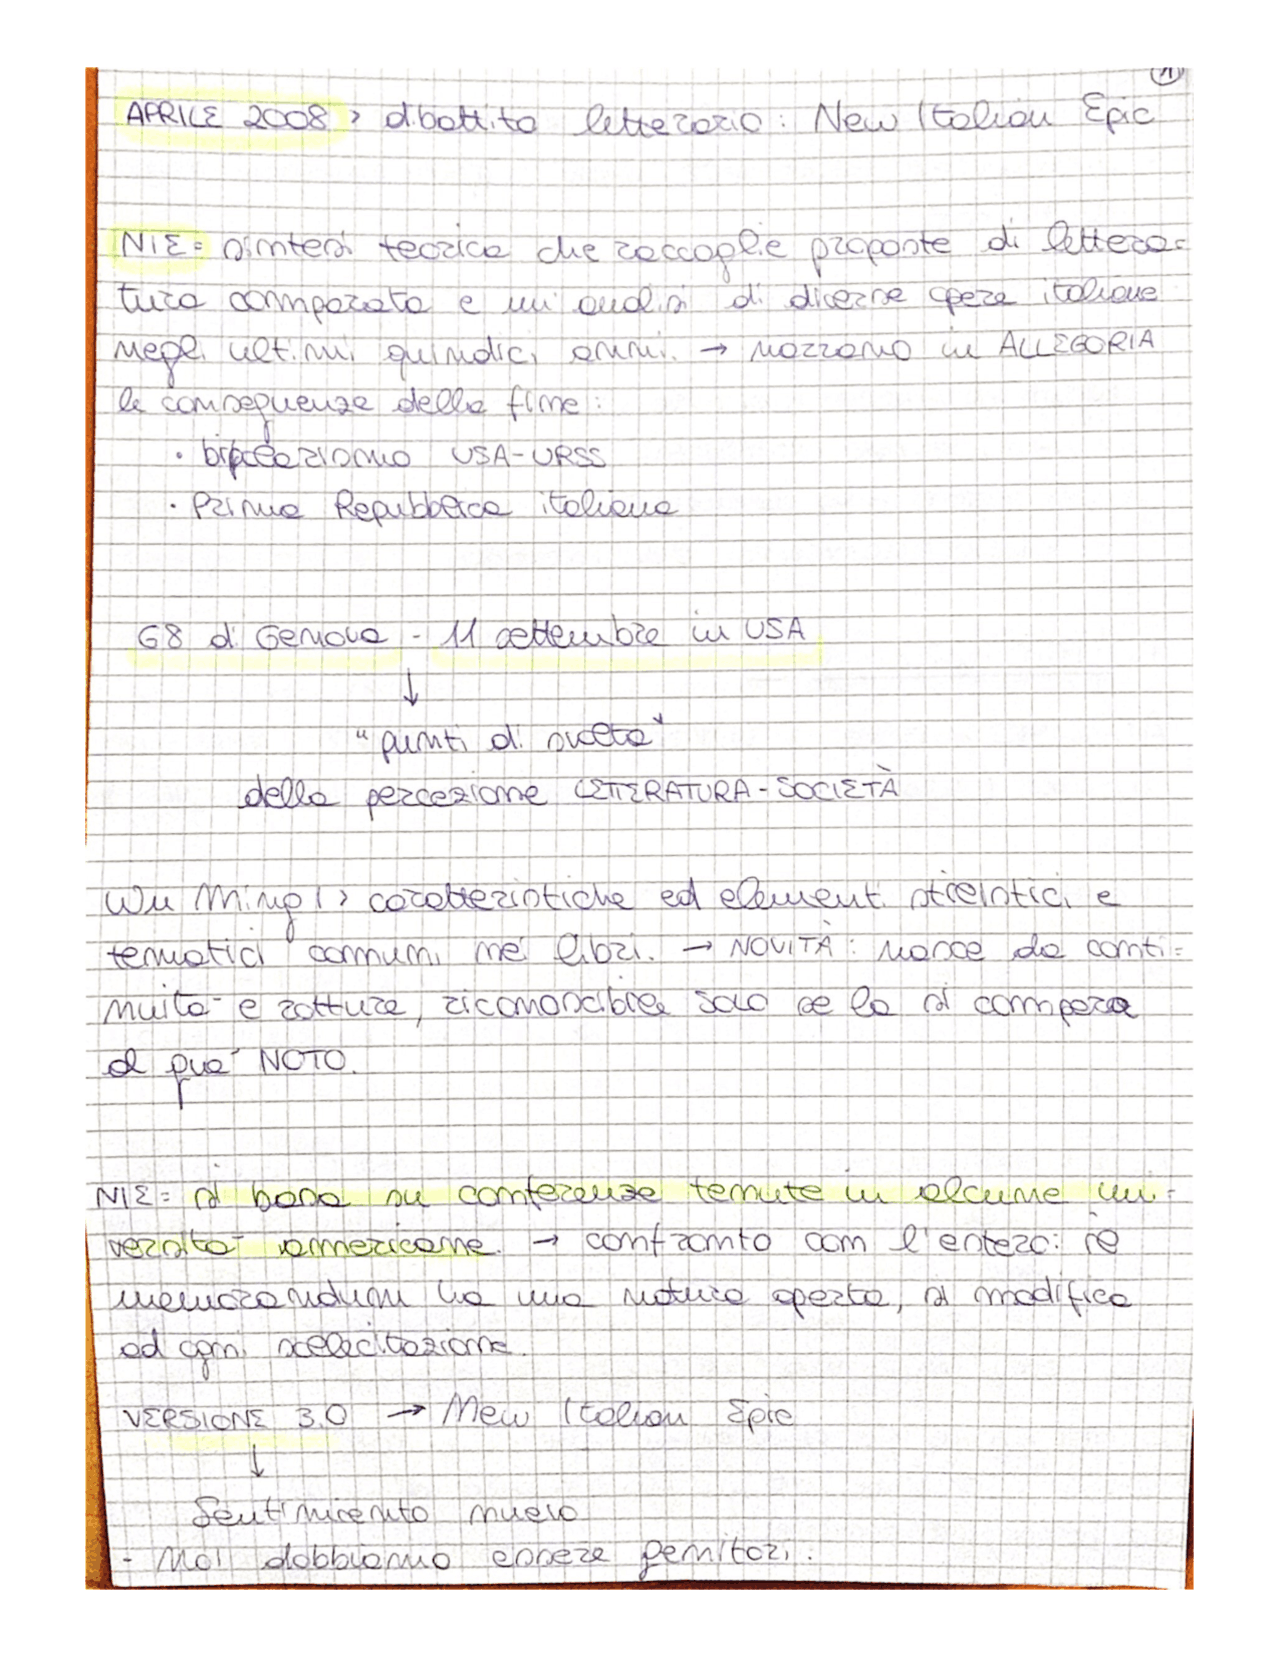 1
APRILE 2008 > dibattito letterario: New Italian Epic
NIE = sintesi teorica che raccoglie proposte di lettera=
tura comparata e un'analisi di diverse opere italiane
negli ultimi quindici anni. → nazzano in ALLEGORIA
le conseguenze della fine:
· bipolarismo USA-URSS
· Prima Repubblica italiana
G8 di Genova - 11 settembre in USA
↓
"punti di svolta"
della percezione LETTERATURA-SOCIETÀ
Wu Ming 1 > caratteristiche ed elementi stilistici e
tematici comuni nei libri. → NOVITÀ: nasce da conti=
nuità e rotture, riconoscibile solo se la si compara
al già NOTO.
NIE = si basa su conferenze tenute in alcune uni=
versità americane. → confronto con l'estero: il
memorandum ha una natura aperta, si modifica
ad ogni sollecitazione.
VERSIONE 3.0 → New Italian Epic
↓
Sentimiento nuevo
- Noi dobbiamo essere genitori: